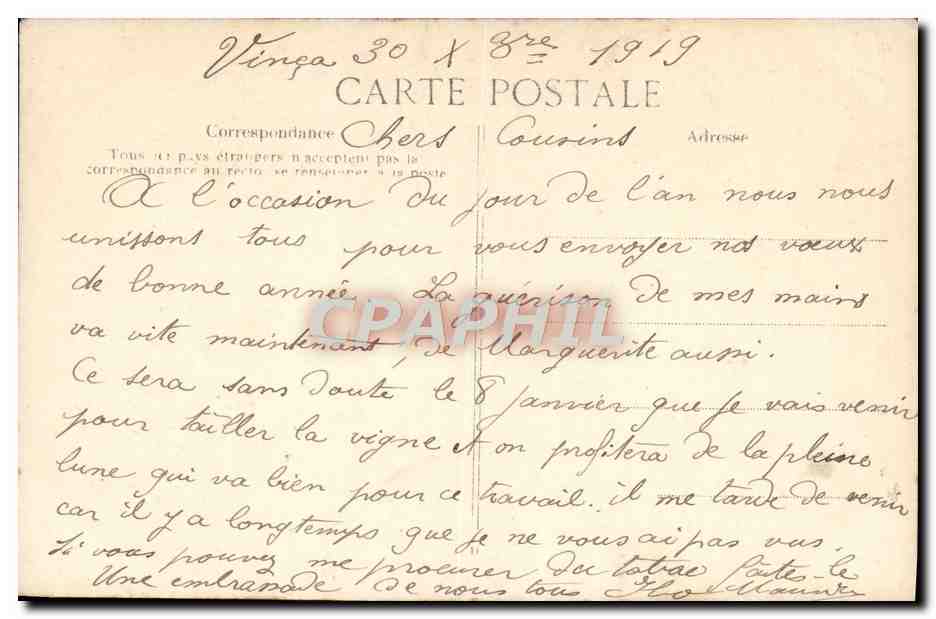 Vinça 30 X bre 1919
CARTE POSTALE
Correspondance Chers Cousins Adresse
Tous les pays étrangers n'acceptent pas la
correspondance au recto, se renseigner à la poste
A l'occasion du jour de l'an nous nous
unissons tous pour vous envoyer nos vœux
de bonne année. La guérison de mes mains
va vite maintenant, de Marguerite aussi.
Ce sera sans doute le 8 Janvier que je vais venir
pour tailler la vigne et on profitera de la pleine
lune qui va bien pour ce travail. il me tarde de venir
car il y a longtemps que je ne vous ai pas vus.
Si vous pouvez me procurer du tabac faites-le
Une embrassade de nous tous
CPAPHIL